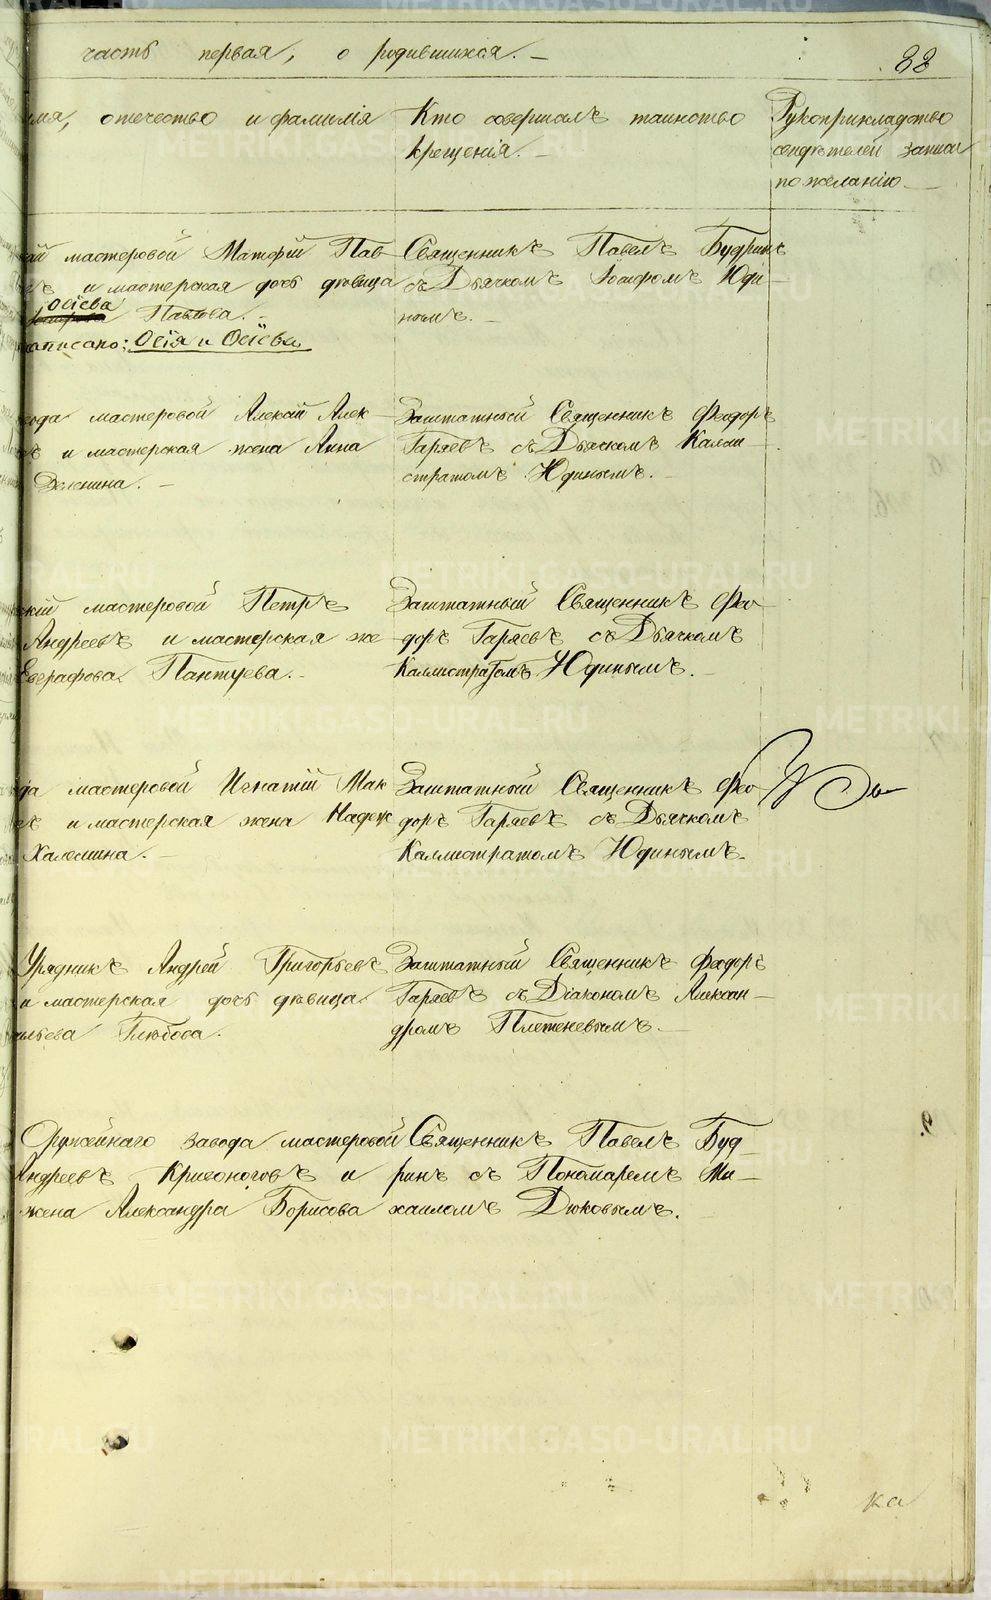 часть первая, о родившихся. —
88
имя, отчество и фамилія
Кто совершалъ таинство
крещенія. —
Рукоприкладство
свидѣтелей записи
по желанію —
мастеровой Матфій Пав
и мастерская дочь дѣвица
Осіева
Павлова. —
написано: Осія и Осіева
Священникъ Павелъ Будринъ
съ Дьячкомъ Іоасафомъ Юди —
нымъ. —
завода мастеровой Алексій Алек —
и мастерская жена Анна
Заштатный Священникъ Феодоръ
Гаряевъ съ Дьячкомъ Калли —
стратомъ Юдинымъ. —
мастеровой Петръ
Андреевъ и мастерская же
Евграфова Пантуева. —
Заштатный Священникъ Фео —
доръ Гаряевъ съ Дьячкомъ
Каллистратомъ Юдинымъ. —
мастеровой Игнатій Мак
и мастерская жена Надеж
Халемина. —
Заштатный Священникъ Фео
доръ Гаряевъ съ Дьячкомъ
Каллистратомъ Юдинымъ.
Урядникъ Андрей Григорьевъ
и мастерская дочь дѣвица
Глюбова.
Заштатный Священникъ Феодоръ
Гаряевъ съ Діакономъ Алексан —
дромъ Плетеневымъ. —
Оружейнаго завода мастеровой
Андреевъ Кривоноговъ и
жена Александра Борисова
Священникъ Павелъ Буд —
ринъ съ Пономаремъ Ми —
хаиломъ Дюковымъ.
ка
METRIKI.GASO-URAL.RU